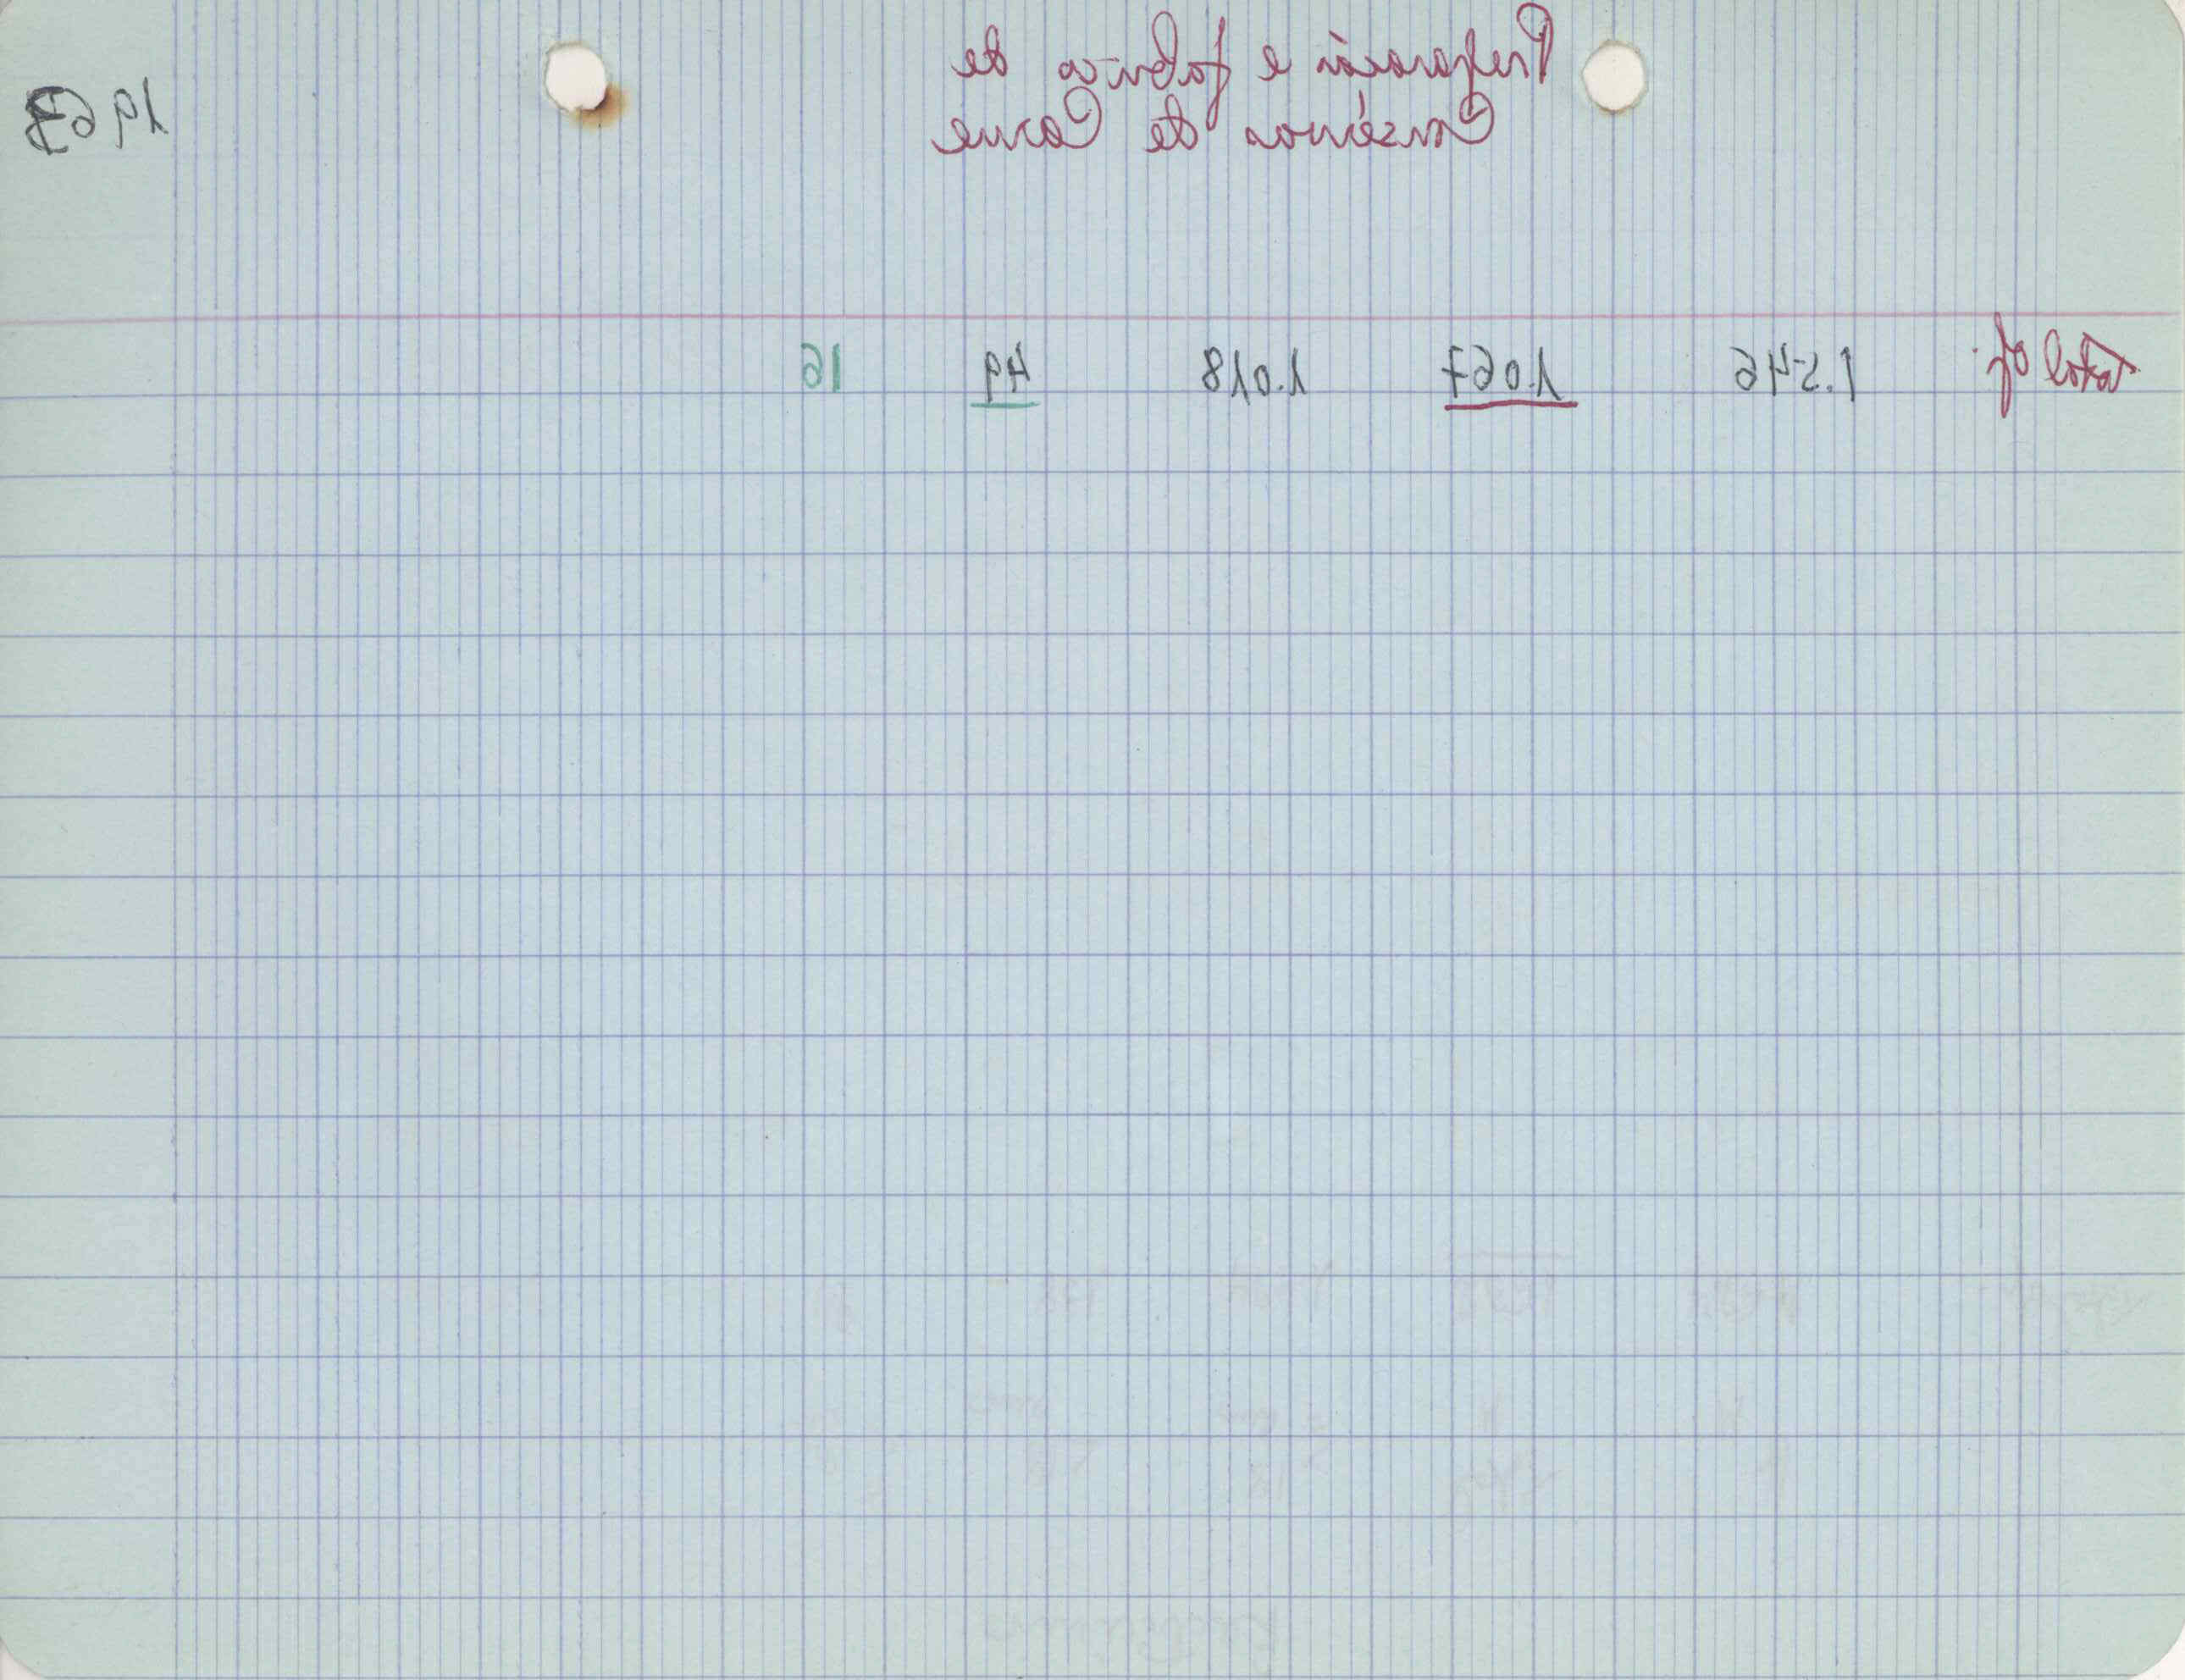 Preparação e fabrico de
Consérvas de Carne
Total of. 1.546 1.067 1.018 49 16